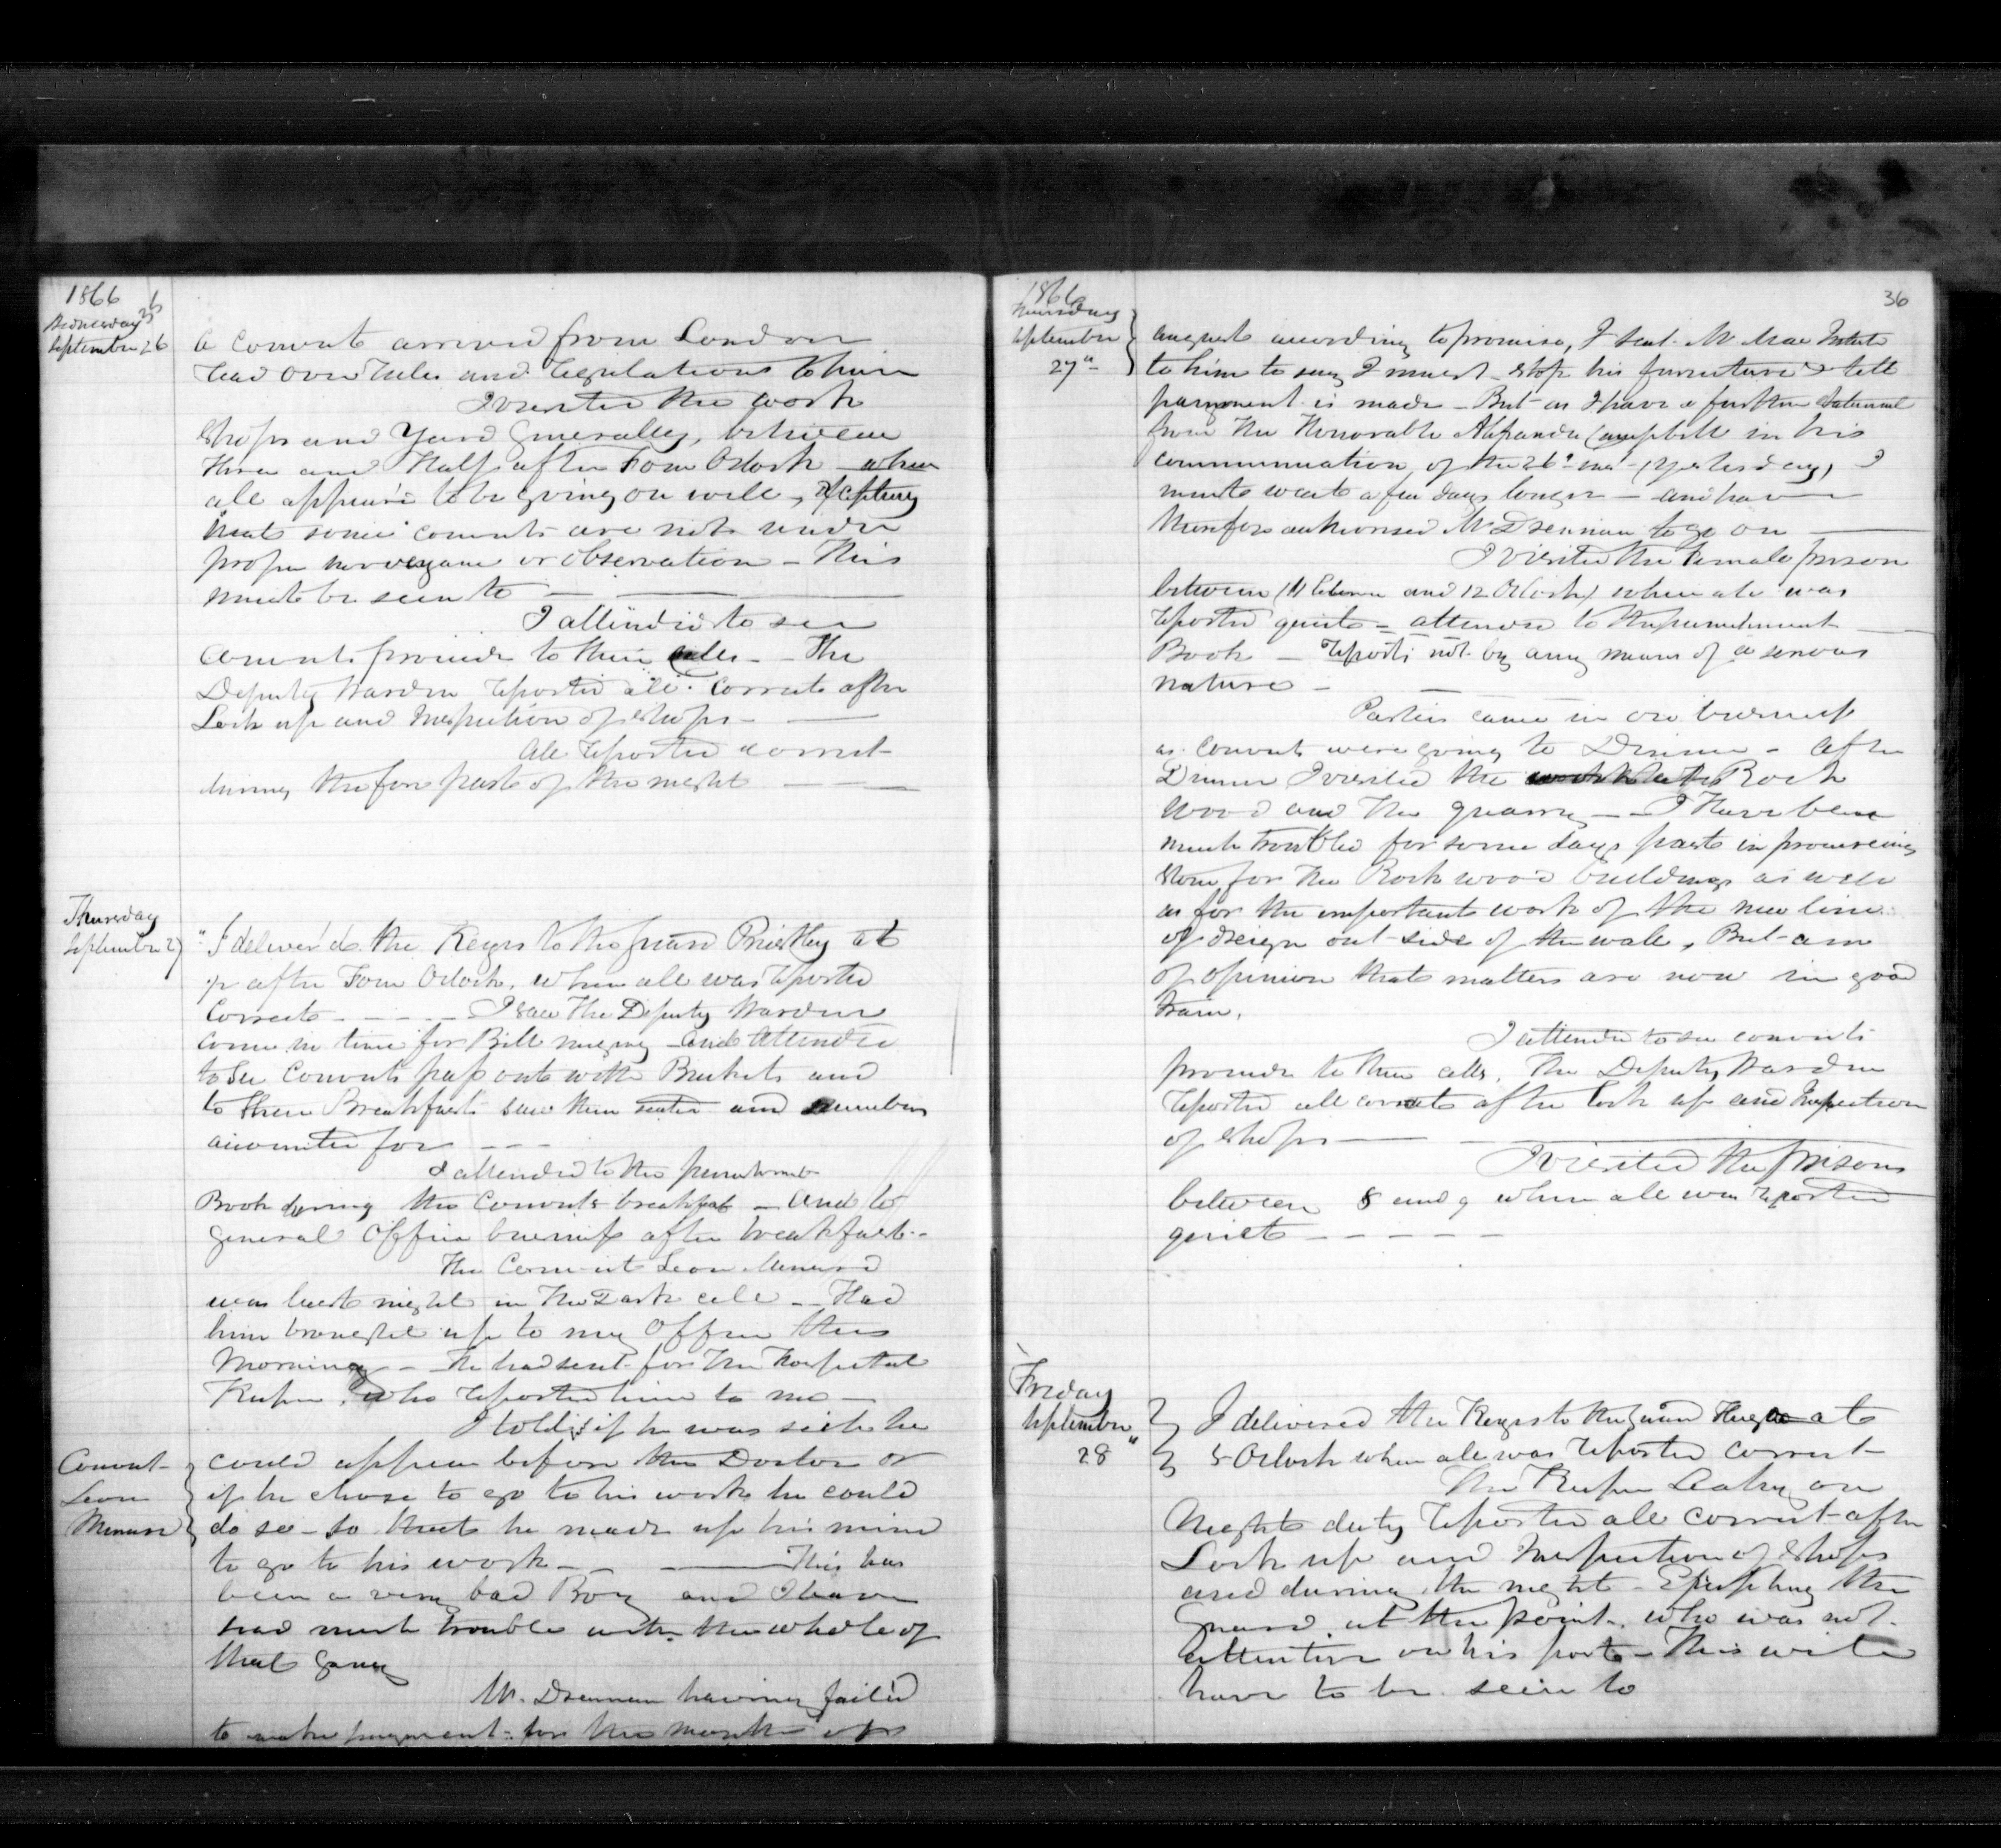 1866
Wednesday 26
September 26
A Convict arrived from London
read over rules and regulations to him
I visited the work
shops and Yard Generally, between
three and Half after Four Oclock when
all appeard to be going on well, Excepting
that some convicts are not under
proper or observation - This
must be seen to
I attended to see
Convicts proceede to their cells - The
Deputy Warden reported all correct after
Lock up and Inspection of shops -
All reported correct
during the fore part of the night
Thursday
September 27
I deliver'd the Keys to the guard Priestley at
after Four Oclock, when all was reported
Correct - I saw The Deputy Warden
come in time for Bell ringing - and Attended
to See Convicts pass out with Buckets and
to their Breakfast saw them seated and numbers
accounted for
I attended to the punishment
Book during the Convicts breakfast - and to
General Office business after breakfast -
The Convict Leon Menard
was last night in The Dark cell - Had
him brought up to my Office this
Morning - He had sent for The Hospital
Keeper, who reported him to me -
I told if he was sick he
Convict
Leon
Menard
could appear before the Doctor or
if he chose to go to his work he could
do so - so that he made up his mind
to go to his work - This has
been a very bad Boy and I have
had much trouble with the whole of
that Gang
Mr. Drennan having failed
to make payment for the month of
36
1866
Thursday
September
27"
august according to promise, I sent Mr
to him to say I must stop his furniture till
payment is made - But as I have a further
from the Honorable Alexander Campbell in his
communication, of the 26th inst (yesterday) I
must wait a few days longer - and have
therefore authorised Mr Drennan to go on
I visited the Female prison
between (11 Eleven and 12 Oclock) when all was
reported quiet - attended to the punishment
Book - Reports not by any means of a serious
nature -
Parties came in on business
as Convicts were going to Dinner - After
Dinner I visited the Rock
wood and the quarry - I Have been
much troubled for some days past in procureing
stone for the Rockwood buildings as well
as for the important work of the new line
of design out-side of the wall, But am
of opinion that matters are now in good
train.
I attended to see convicts
proceede to their cells. The Deputy Warden
reported all correct after Lock up and Inspection
of shops
I visited the prisons
between 8 and 9 when all was reported
quiet
Friday
September
28"
I delivered the Keys to the guard at
5 Oclock when all was reported correct
The Keeper Leahy on
Night duty reported all correct after
Lock up and Inspection of shops
and during the night - Excepting the
Guard at the point, who was not
attentive on his post - This will
have to be seen to